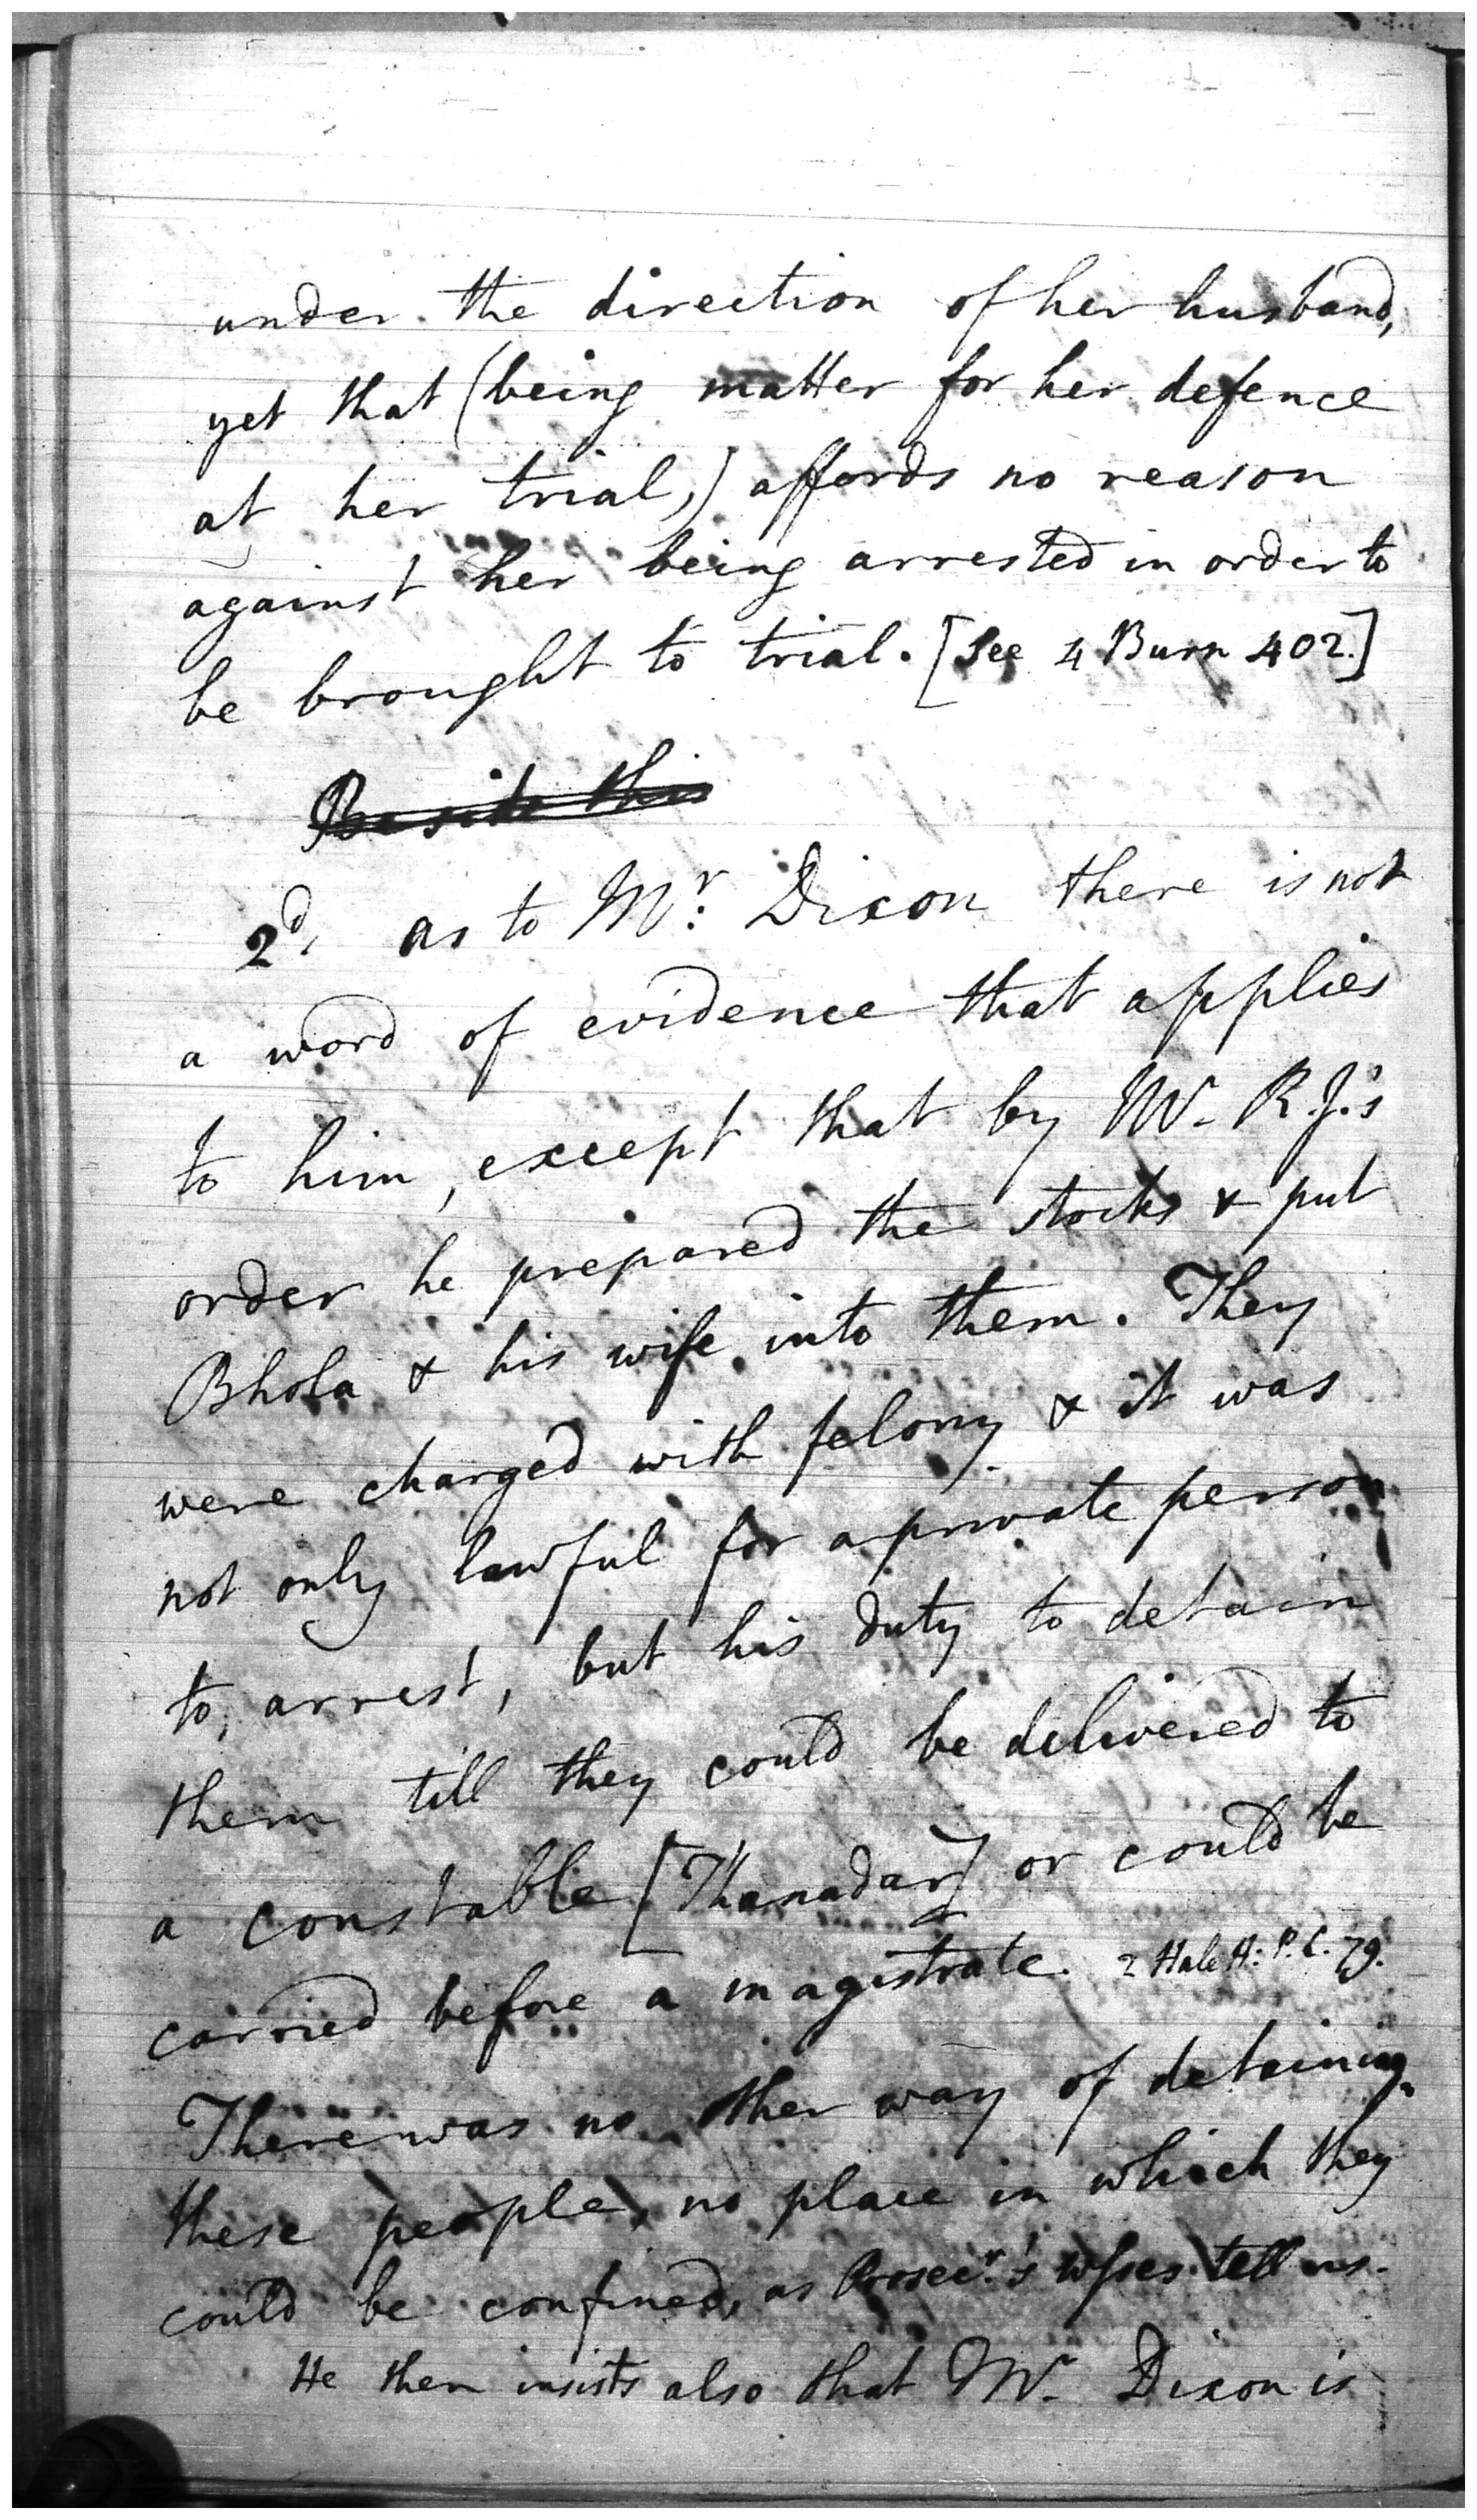 under the direction of her husband,
yet that (being matter for her defence
at her trial,) affords no reason
against her being arrested in order to
be brought to trial. [See 4 Burn 402.]
Beside this
2d, as to Mr. Dixon there is not
a word of evidence that applies
to him, except that by Mr. R.J.'s
order he prepared the stocks & put
Bhola & his wife into them. They
were charged with felony & it was
not only lawful for a private person
to arrest, but his duty to detain
them till they could be delivered to
a constable [Thanadar] or could be
carried before a magistrate. 2 Hale H: P.C. 79.
There was no other way of detaining
these people, no place in which they
could be confined, as Prosecr.'s wsses tell us.
He then insists also that Mr. Dixon is